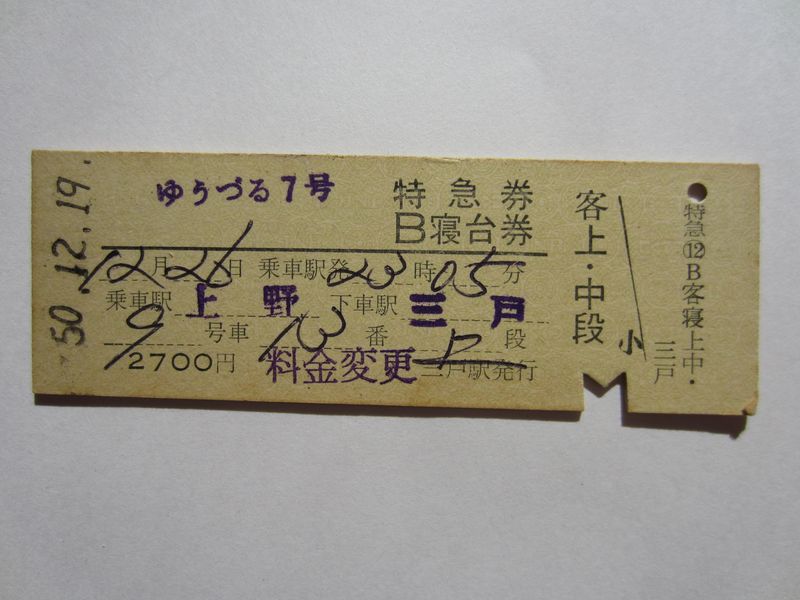 50.12.19.
ゆうづる7号
特急券
B寝台券
12月26日 乗車駅発23時05分
乗車駅 上野 下車駅 三戸
9号車 13番 上段
2700円 料金変更 三戸駅発行
客上・中段
小
特急⑫B客寝上中・
三戸